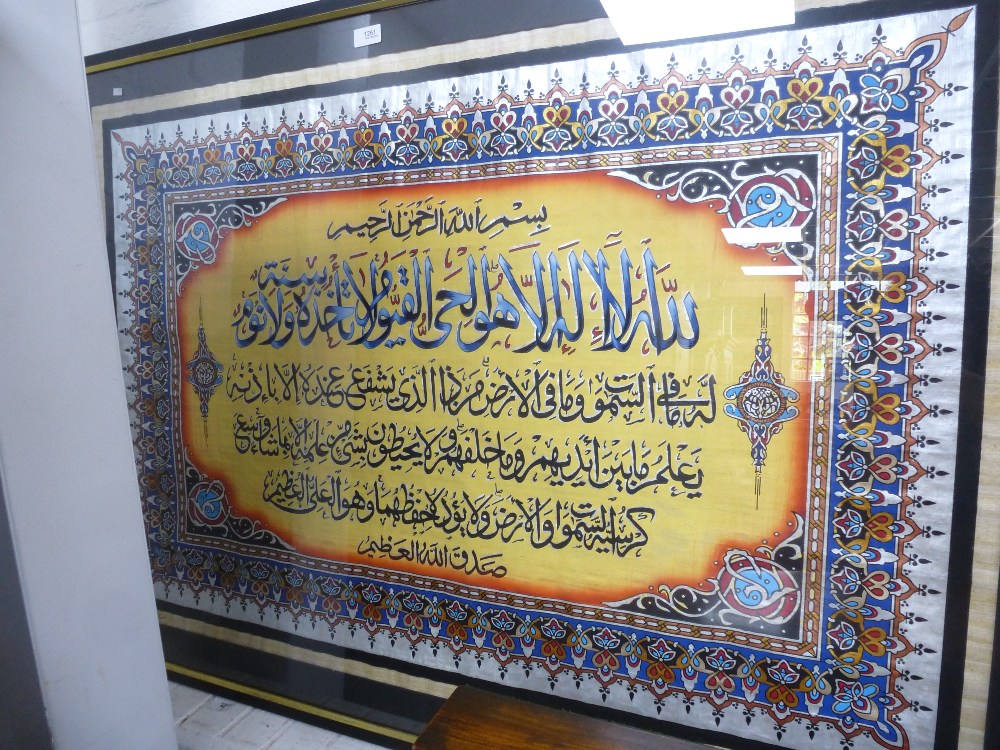 1261
بِسْمِ اللَّهِ الرَّحْمَنِ الرَّحِيمِ
اللَّهُ لَا إِلَهَ إِلَّا هُوَ الْحَيُّ الْقَيُّومُ لَا تَأْخُذُهُ سِنَةٌ وَلَا نَوْمٌ
لَهُ مَا فِي السَّمَوَاتِ وَمَا فِي الْأَرْضِ مَن ذَا الَّذِي يَشْفَعُ عِندَهُ إِلَّا بِإِذْنِهِ
يَعْلَمُ مَا بَيْنَ أَيْدِيهِمْ وَمَا خَلْفَهُمْ وَلَا يُحِيطُونَ بِشَيْءٍ مِنْ عِلْمِهِ إِلَّا بِمَا شَاءَ وَسِعَ
كُرْسِيُّهُ السَّمَوَاتِ وَالْأَرْضَ وَلَا يَؤُدُهُ حِفْظُهُمَا وَهُوَ الْعَلِيُّ الْعَظِيمُ
صَدَقَ اللَّهُ الْعَظِيمُ